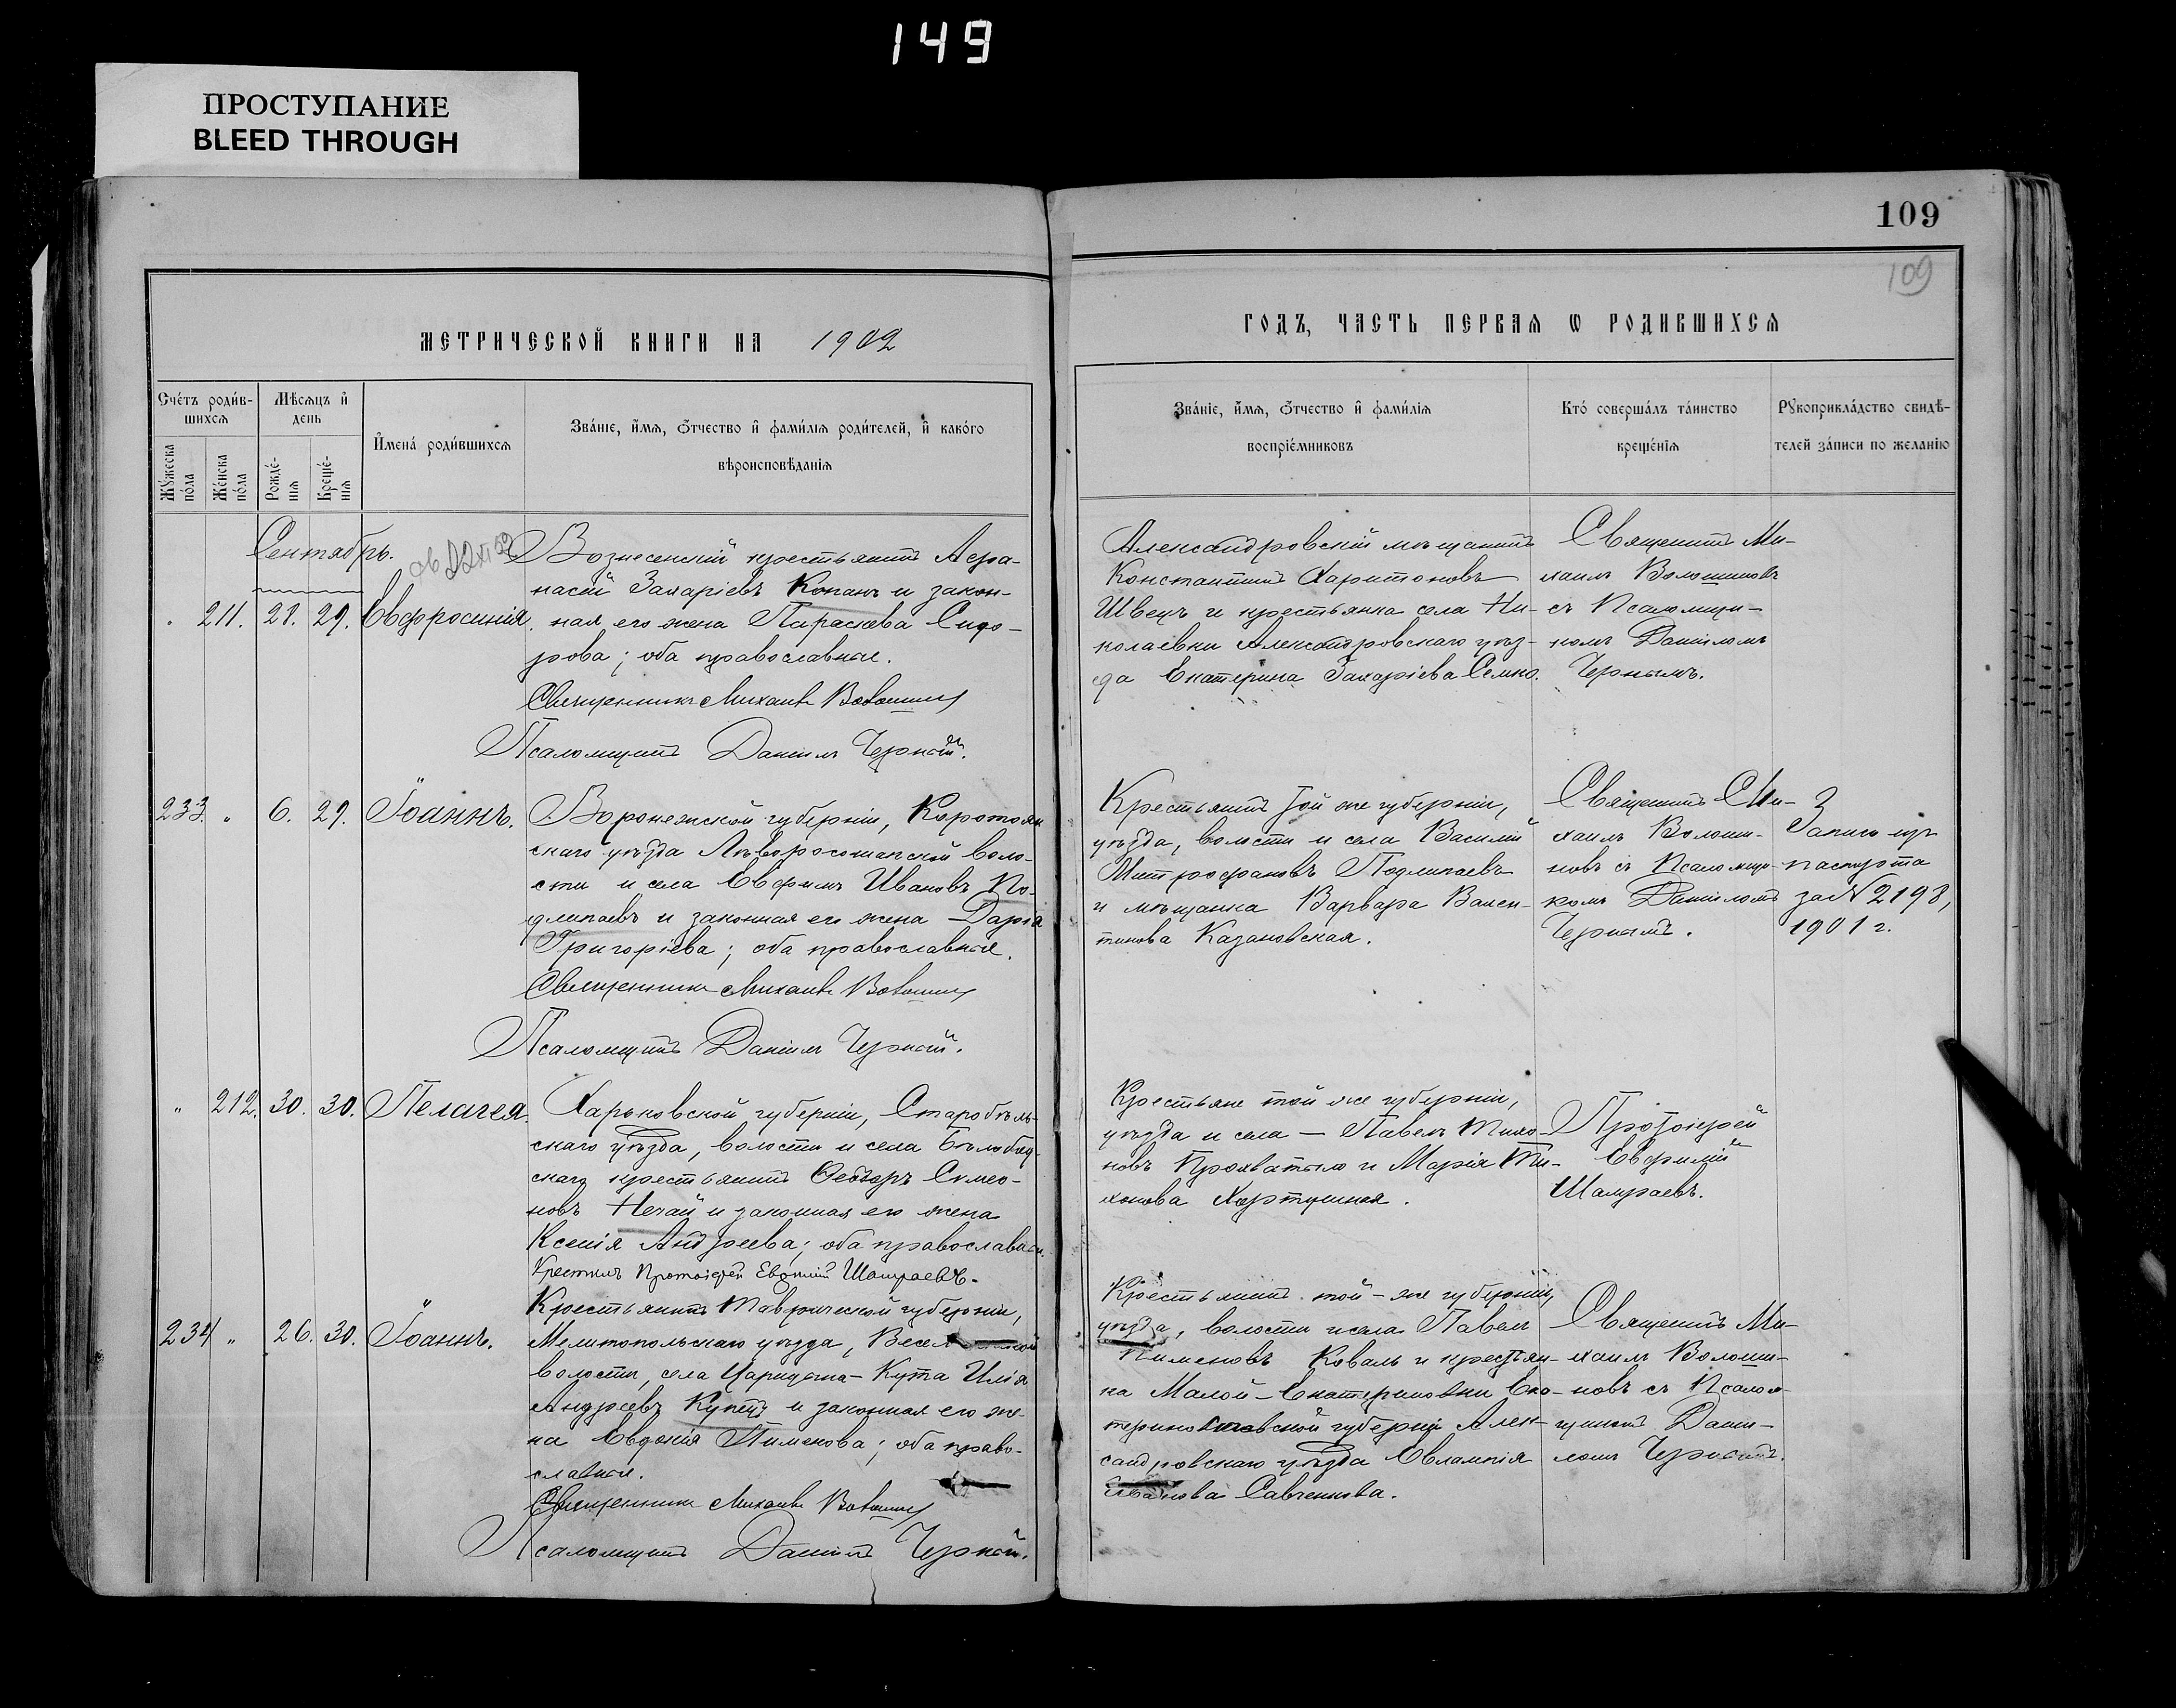 149
ПРОСТУПАНИЕ
BLEED THROUGH
109
109
МЕТРИЧЕСКОЙ КНИГИ НА 1902
ГОДЪ, ЧАСТЬ ПЕРВАЯ Ѡ РОДИВШИХСЯ
Счетъ родившихся
Мѣсяцъ и день
Имена родившихся
Званіе, имя, отчество и фамилія родителей, и какого
вѣроисповѣданія
Мужеска пола
Женска пола
Рожденія
Крещенія
Званіе, имя, отчество и фамилія
воспріемниковъ
Кто совершалъ таинство
крещенія
Рукоприкладство свидѣ-
телей записи по желанію
Сентябрь.
" 211. 28. 29. Евфросинія.
Вознесенскій крестьянинъ Афа-
насій Захаріевъ Копанъ и закон-
ная его жена Параскева Сидо-
рова; оба православные.
Священникъ Михаилъ Волошинъ
Псаломщикъ Даніилъ Черный.
Александровскій мѣщанинъ
Константинъ Харитоновъ
Швецъ и крестьянка села Ни-
колаевки Александровскаго уѣз-
да Екатерина Захаріева Семко.
Священникъ Ми-
хаилъ Волошиновъ
съ Псаломщи-
комъ Даніиломъ
Чернымъ.
233. " 6. 29. Іоаннъ.
Воронежской губерніи, Коротояк-
скаго уѣзда Лѣворосошанской воло-
сти и села Евфимъ Ивановъ По-
длипаевъ и законная его жена Дарія
Григоріева; оба православные.
Священникъ Михаилъ Волошинъ
Псаломщикъ Даніилъ Черный.
Крестьянинъ той же губерніи,
уѣзда, волости и села Василій
Митрофановъ Подлипаевъ
и мѣщанка Варвара Вален-
тинова Казановская.
Священникъ Ми-
хаилъ Волоши-
новъ съ Псаломщи-
комъ Даніиломъ
Чернымъ.
Запись изъ
паспорта
за № 2198,
1901 г.
" 212. 30. 30. Пелагея.
Харьковской губерніи, Старобѣль-
скаго уѣзда, волости и села Бѣловод-
скаго крестьянинъ Ѳеодоръ Симео-
новъ Нечай и законная его жена
Ксенія Андреева; оба православные.
Крестилъ Протоіерей Евфимій Шамраевъ.
Крестьяне той же губерніи,
уѣзда и села — Павелъ Тихо-
новъ Прохватыло и Марія Ти-
хонова
Протоіерей
Евфимій
Шамраевъ.
234 " 26. 30. Іоаннъ.
Крестьянинъ Таврической губерніи,
Мелитопольскаго уѣзда,
волости, села Царицына-Кута Илія
Андреевъ Купецъ и законная его же-
на Евдокія Пименова; оба право-
славные.
Священникъ Михаилъ Волошинъ
Псаломщикъ Даніилъ Черный.
Крестьянинъ той-же губерніи,
уѣзда, волости и села Павелъ
Пименовъ Коваль и крестьян-
ка Малой-Екатериновки Ека-
теринославской губерніи Алек-
сандровскаго уѣзда Евлампія
Савченкова.
Священникъ Ми-
хаилъ Волоши-
новъ съ Псалом-
щикомъ Дани-
ломъ Чернымъ.